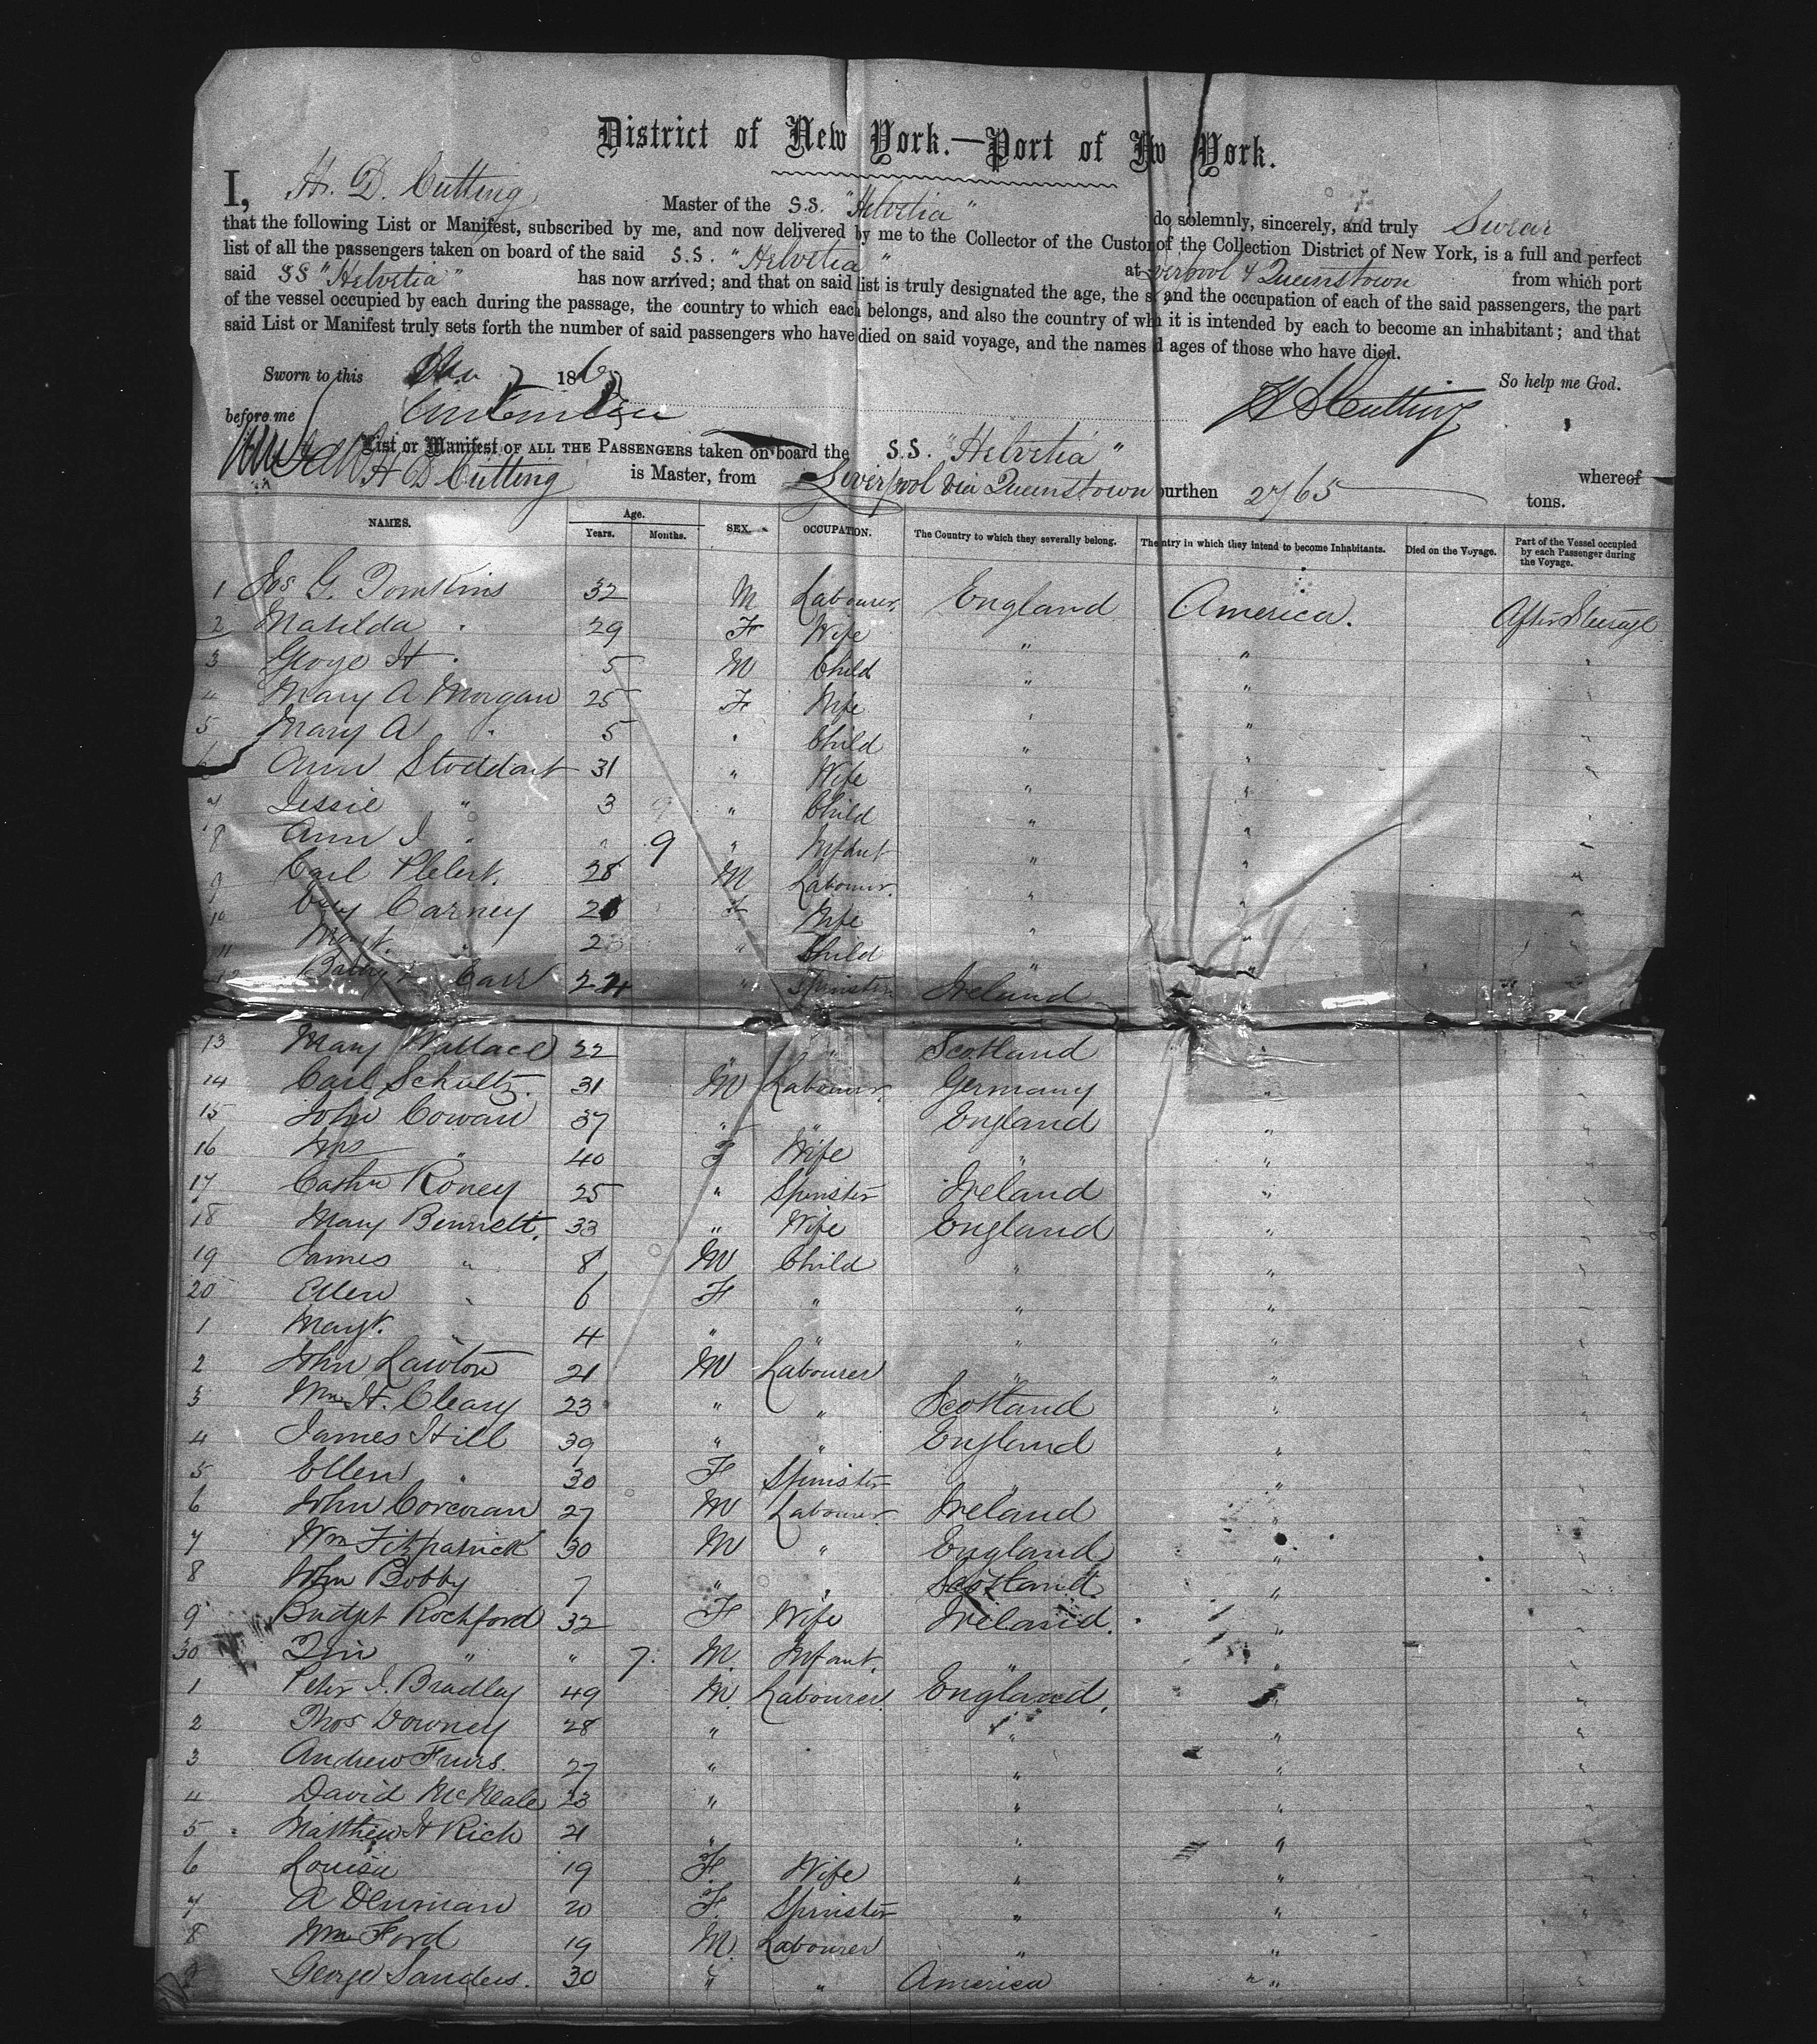 District of New York.—Port of New York.
I, H. D. Cutting Master of the S.S. "Helvetia" do solemnly, sincerely, and truly Swear
that the following List or Manifest, subscribed by me, and now delivered by me to the Collector of the Custo of the Collection District of New York, is a full and perfect
list of all the passengers taken on board of the said S.S. "Helvetia" at Liverpool & Queenstown from which port
said SS "Helvetia" has now arrived; and that on said list is truly designated the age, the s and the occupation of each of the said passengers, the part
of the vessel occupied by each during the passage, the country to which each belongs, and also the country of wh it is intended by each to become an inhabitant; and that
said List or Manifest truly sets forth the number of said passengers who have died on said voyage, and the names d ages of those who have died.
Sworn to this 7 186 So help me God.
before me H D Cutting
List or Manifest OF ALL THE PASSENGERS taken on board the S.S. "Helvetia" whereof
H D Cutting is Master, from Liverpool via Queenstown burthen 2765 tons.
NAMES. Age. Years. Months. SEX. OCCUPATION. The Country to which they severally belong. The ntry in which they intend to become Inhabitants. Died on the Voyage. Part of the Vessel occupied by each Passenger during the Voyage.
1 Jos G. Tomkins 32 M Labourer England America. After Steerage
2 Matilda " 29 F Wife " " "
3 Geoge H " 5 M Child " " "
4 Mary A Morgan 25 F Wife " " "
5 Mary A " 5 " Child " " "
6 Ann Stoddart 31 " Wife " " "
7 Jessie " 3 " Child " " "
8 Ann J " " 9 " Infant " " "
9 Carl 28 M Labourer. " " "
10 Carney F Wife " " "
11 Margt. " " Child " " "
12 Carr 24 " Spinster Ireland " "
13 Mary Wallace 22 " " Scotland " "
14 Carl Schultz. 31 M Labourer. Germany " "
15 John Cowan 37 " " England " "
16 Mrs " 40 F Wife " " "
17 Cathn Roney 25 " Spinster Ireland " "
18 Mary Bennett. 33 " Wife England " "
19 James " 8 M Child " " "
20 Ellen " 6 F " " " "
1 Margt. " 4 " " " " "
2 John Lawton 21 M Labourer " " "
3 Wm H. Cleary 23 " " Scotland " "
4 James Hill 39 " " England " "
5 Ellen " 30 F Spinster " " "
6 John Corcoran 27 M Labourer Ireland " "
7 Wm Fitzpatrick 30 M " England " "
8 John Bobby 7 " " Scotland " "
9 Bridgt Rochford 32 F Wife Ireland. " "
30 " " 7. M. Infant. " " "
1 Peter J. Bradley 49 M. Labourer England. " "
2 Thos Downey 28 " " " "
3 Andrew 27 " " " "
4 David McNeale 23 " " " "
5 Matthew H Rich 21 " " " "
6 Louisa 19 F. Wife " " "
7 A Denman 20 F. Spinster " " "
8 Wm Ford 19 M. Labourer " " "
9 George Sanders. 30 " " America " "